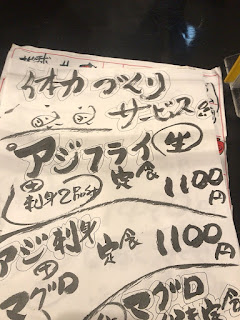 体力づくり
サービス
アジフライ 生
定食 1100円
刺身2品付
アジ刺身 定食 1100円
マグロ
マグロ